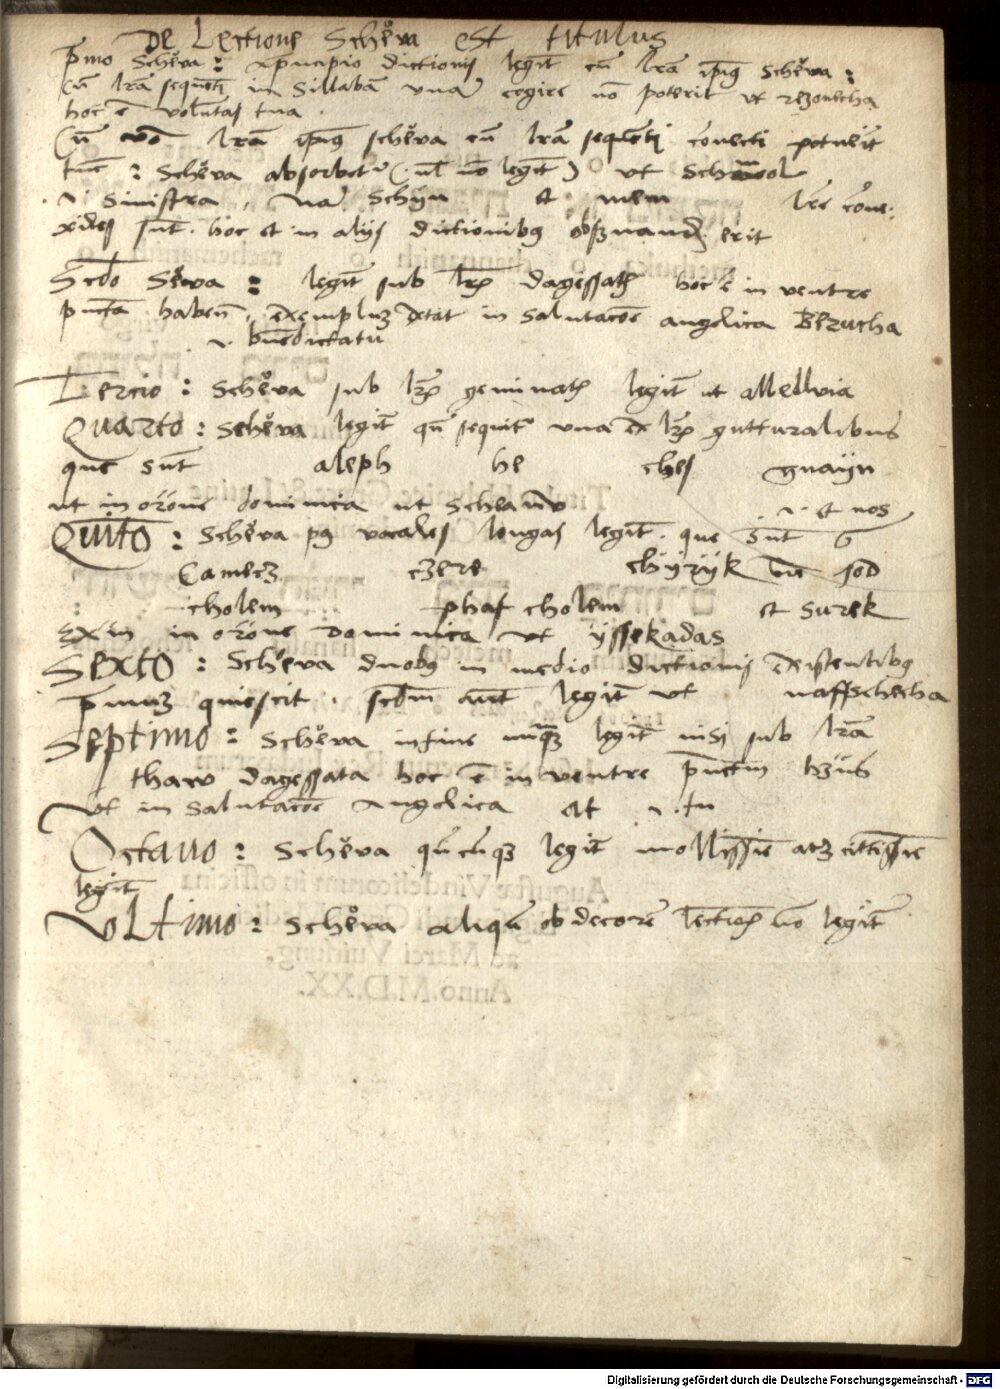 De Lectione Schĕva est titulus
Pͥmo Schĕva : i pͥncipio dictionis legit̄ cū lrā ipīus Schĕva :
Cū lrā sequent̄i in Sillabam vnā cogire nō poterit vt rezoncha
hoc ē voluntas tua .
Cū vō lrā ipīus schĕva cū lrā sequēti cōnecti potuēit
tūc : Schĕva absorbetͬ ( vl̄ nō legit̄ ) vt Schmool
.i. sinistra , nā Schyn et mem lre cōne-
xibiles sūt . hoc et in alijs dictionibꝰ obsͬuand erit
Scd̄o Sĕva : legit̄ sub lrā dagessata hoc ē in ventre
pūcta haben̄ , exempluꝫ in Salutacōe angelica Berucha
.i. bn̄edictatu
Tercio : Schĕva sub lrā geminata legit̄ ut allelluia
Quarto : Schĕva legit̄ qn̄ sequitͬ vna ex lrīs gutturalibus
que sūt aleph he ches gnayn
ut in orōne dominica ut Scheanv .i. et nos
Quīto : Schĕva pꝰ vocales longas legit̄ . que sūt 6
Camecz czere chyryk jod
cholem phaf cholem et Surek
Exm̄ in orōne Dominica vt yssekadas
Sexto : Schĕva duobꝰ in medio dictionis existentibꝰ
pͥmuꝫ quiescit . scd̄m aūt legit̄ vt naffschecha
Septimo : Schĕva in fine nūqꝫ legit̄ nisi sub lrā
thaw dagessata hoc ē in ventre pūctm̄ hn̄s
Vt in Salutacōe Angelica At .i. tu
Octauo : Schĕva qn̄cūqꝫ legit̄ mollissīe atqꝫ cittissīe
legit̄
Vltimo : Schĕva aliqn̄ ob decorē lectionis nō legit̄
Digitalisierung gefördert durch die Deutsche Forschungsgemeinschaft - DFG